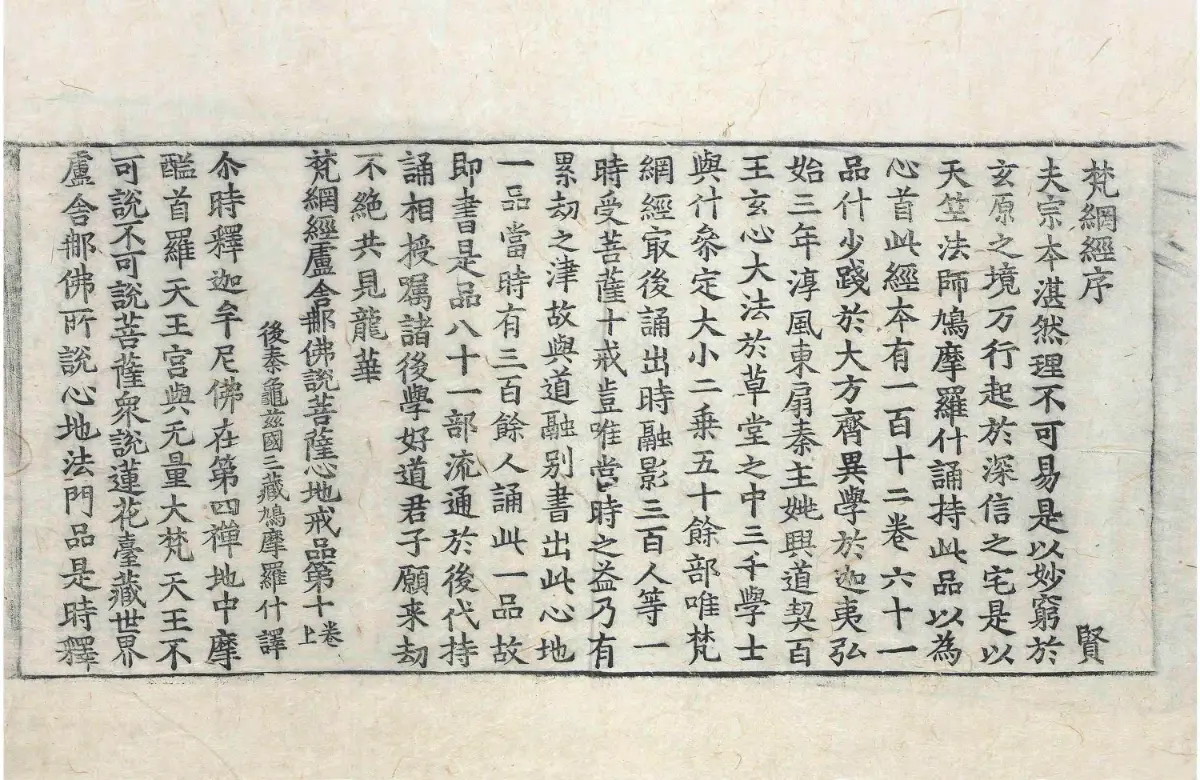 梵網經序 賢
夫宗本湛然理不可易是以妙窮於
玄原之境万行起於深信之宅是以
天竺法師鳩摩羅什誦持此品以為
心首此經本有一百十二卷六十一
品什少踐於大方齊異學於迦夷弘
始三年淳風東扇秦主姚興道契百
王玄心大法於草堂之中三千學士
與什叅定大小二乗五十餘部唯梵
網經冣後誦出時融影三百人等一
時受菩薩十戒豈唯當時之益乃有
累劫之津故與道融别書出此心地
一品當時有三百餘人誦此一品故
即書是品八十一部流通於後代持
誦相授嘱諸後學好道君子願来劫
不絶共見龍華
梵網經盧舍那佛說菩薩心地戒品第十卷上
後秦龜茲國三藏鳩摩羅什譯
尒時釋迦牟尼佛在第四禪地中摩
醯首羅天王宮與无量大梵天王不
可說不可說菩薩衆說蓮花臺藏世界
盧舍那佛所說心地法門品是時釋